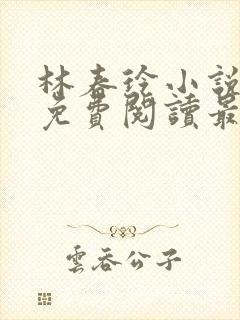 林春徐小說
免費閱讀最
雲吞公子